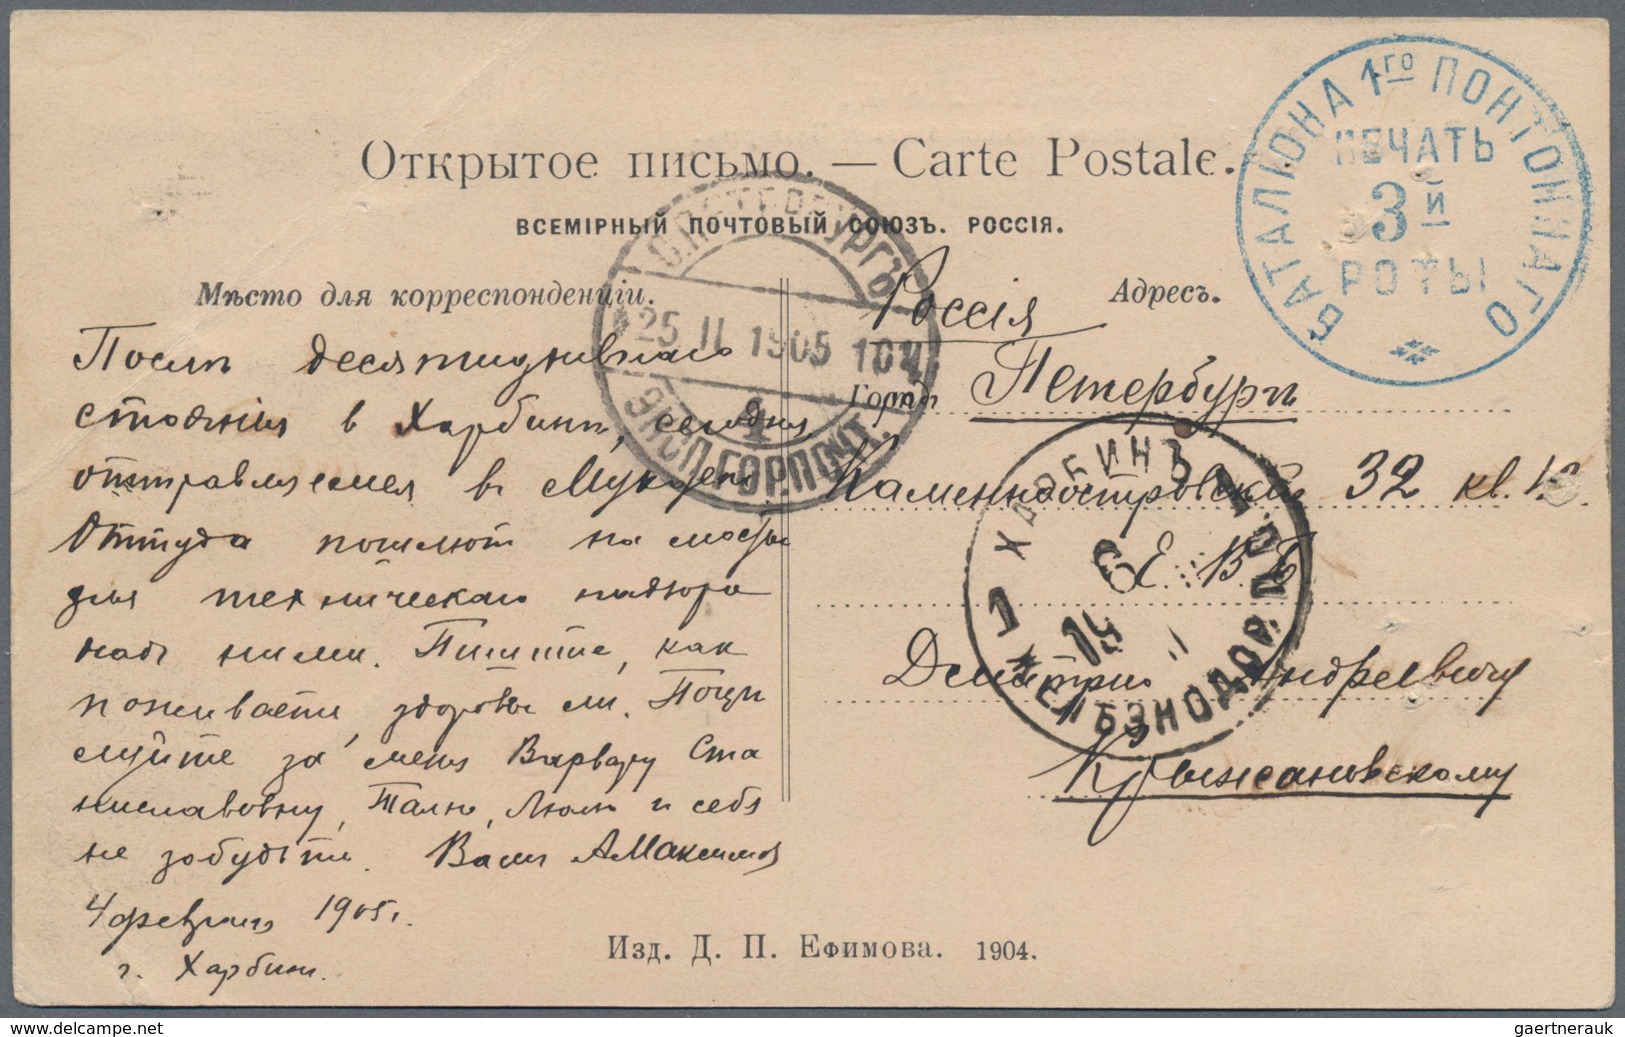 Открытое письмо. — Carte Postale.
ВСЕМІРНЫЙ ПОЧТОВЫЙ СОЮЗЪ. РОССІЯ.
Мѣсто для корреспонденціи.
Адресъ.
БАТАЛІОНА 1го ПОНТОННАГО
ПЕЧАТЬ
3й
РОТЫ
С.ПЕТЕРБУРГЪ
25 II 1905 10Ч
4
ЭКСП.ГОРПОЧТ.
Послѣ десятидневнаго
стоянія в Харбинѣ, сегодня
отправляемся в Мукденъ
Оттуда пошлют на мосты
для техническаго надзора
надъ ними. Пишите, как
поживаете, здоровы ли. Поцѣ
луйте за меня Варвару Ста
ниславовну, Талю, Люлю и себя
не забудьте. Вашъ А Максимов
4 февраля 1905 г.
г. Харбин.
Россія
Городъ Петербургъ
Каменноостровскій 32 кв. 13
Е. В. Б.
Дмитрію Андреевичу
Крыжановскому
ХАРБИНЪ
ЖЕЛѢЗНОДОР.
Изд. Д. П. Ефимова. 1904.
gaertnerauk @ www.delcampe.net